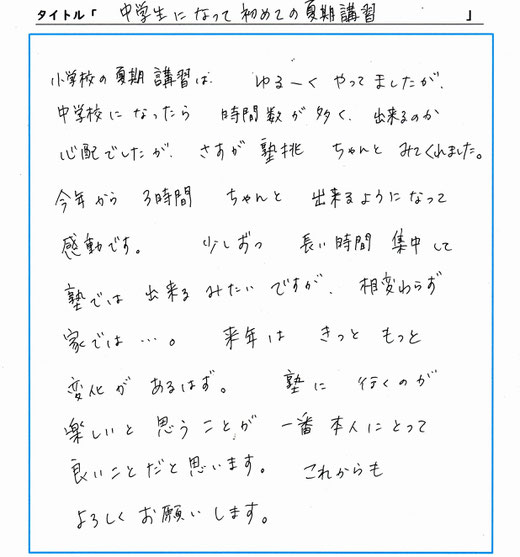 タイトル「 中学生になって初めての夏期講習 」
小学校の夏期講習は ゆる〜く やってましたが、
中学校になったら 時間数が多く、出来るのか
心配でしたが、さすが塾挑 ちゃんと みてくれました。
今年から 3時間 ちゃんと 出来るようになって
感動です。 少しずつ 長い時間 集中して
塾では 出来る みたいですが、相変わらず
家では…。 来年は きっと もっと
変化が あるはず。 塾に 行くのが
楽しいと 思うことが 一番 本人にとって
良いことだと思います。 これからも
よろしく お願いします。